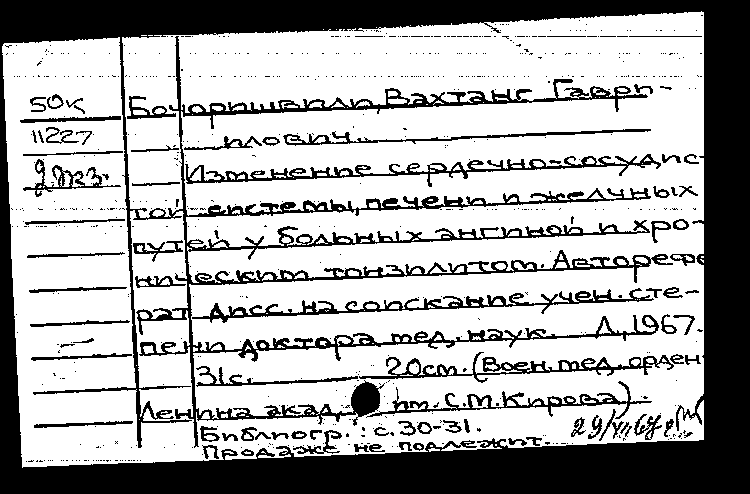 50к Бочоришвили, Вахтанг Гаври-
11227 илович.
2 экз. Изменение сердечно-сосудис-
той системы, печени и желчных
путей у больных ангиной и хро-
ническим тонзилитом. Авторефе
рат дисс. на соискание учен. сте-
пени доктора мед. наук. Л., 1967.
31с. 20см. (Воен. мед. орден
Ленина акад. им. С.М. Кирова).
Библиогр.: с. 30-31.
Продаже не подлежит.